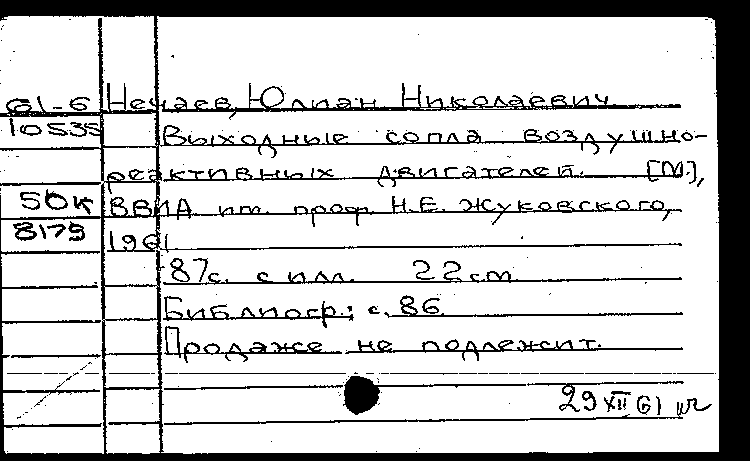 61-6 Нечаев, Юлиан Николаевич
10535 Выходные сопла воздушно-
реактивных двигателей. [М.],
50к ВВИА им. проф. Н.Е. Жуковского,
8179 1961
87с. с илл. 22 см.
Библиогр.: с. 86
Продаже не подлежит.
29 XII 61